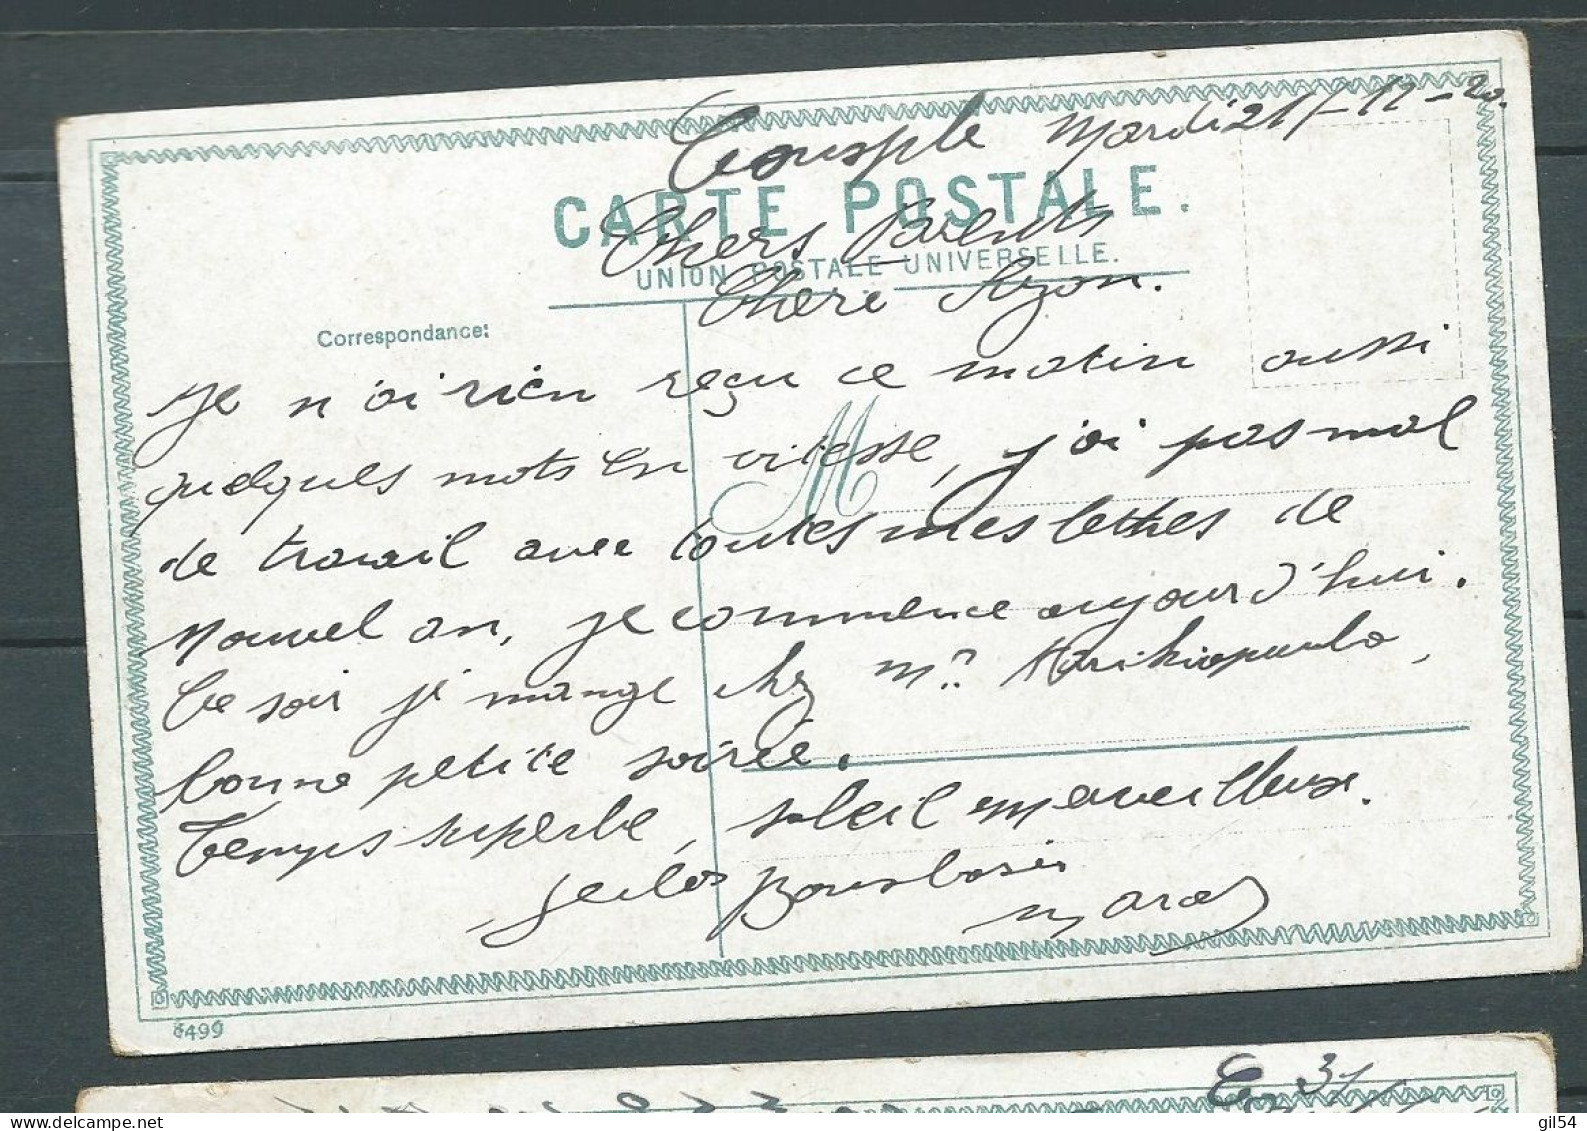 Consple Mardi 21-12-20.
CARTE POSTALE.
Chers Parents
UNION POSTALE UNIVERSELLE.
Chère
Correspondance:
Je n'ai rien reçu ce matin aussi
quelques mots en vitesse, j'ai pas mal
de travail avec toutes mes lettres de
Nouvel an, je commence aujourd'hui.
Ce soir je mange chez
bonne petite soirée.
Temps superbe, soleil merveilleux.
Bons baisers
Marcel
6499
31
gil54